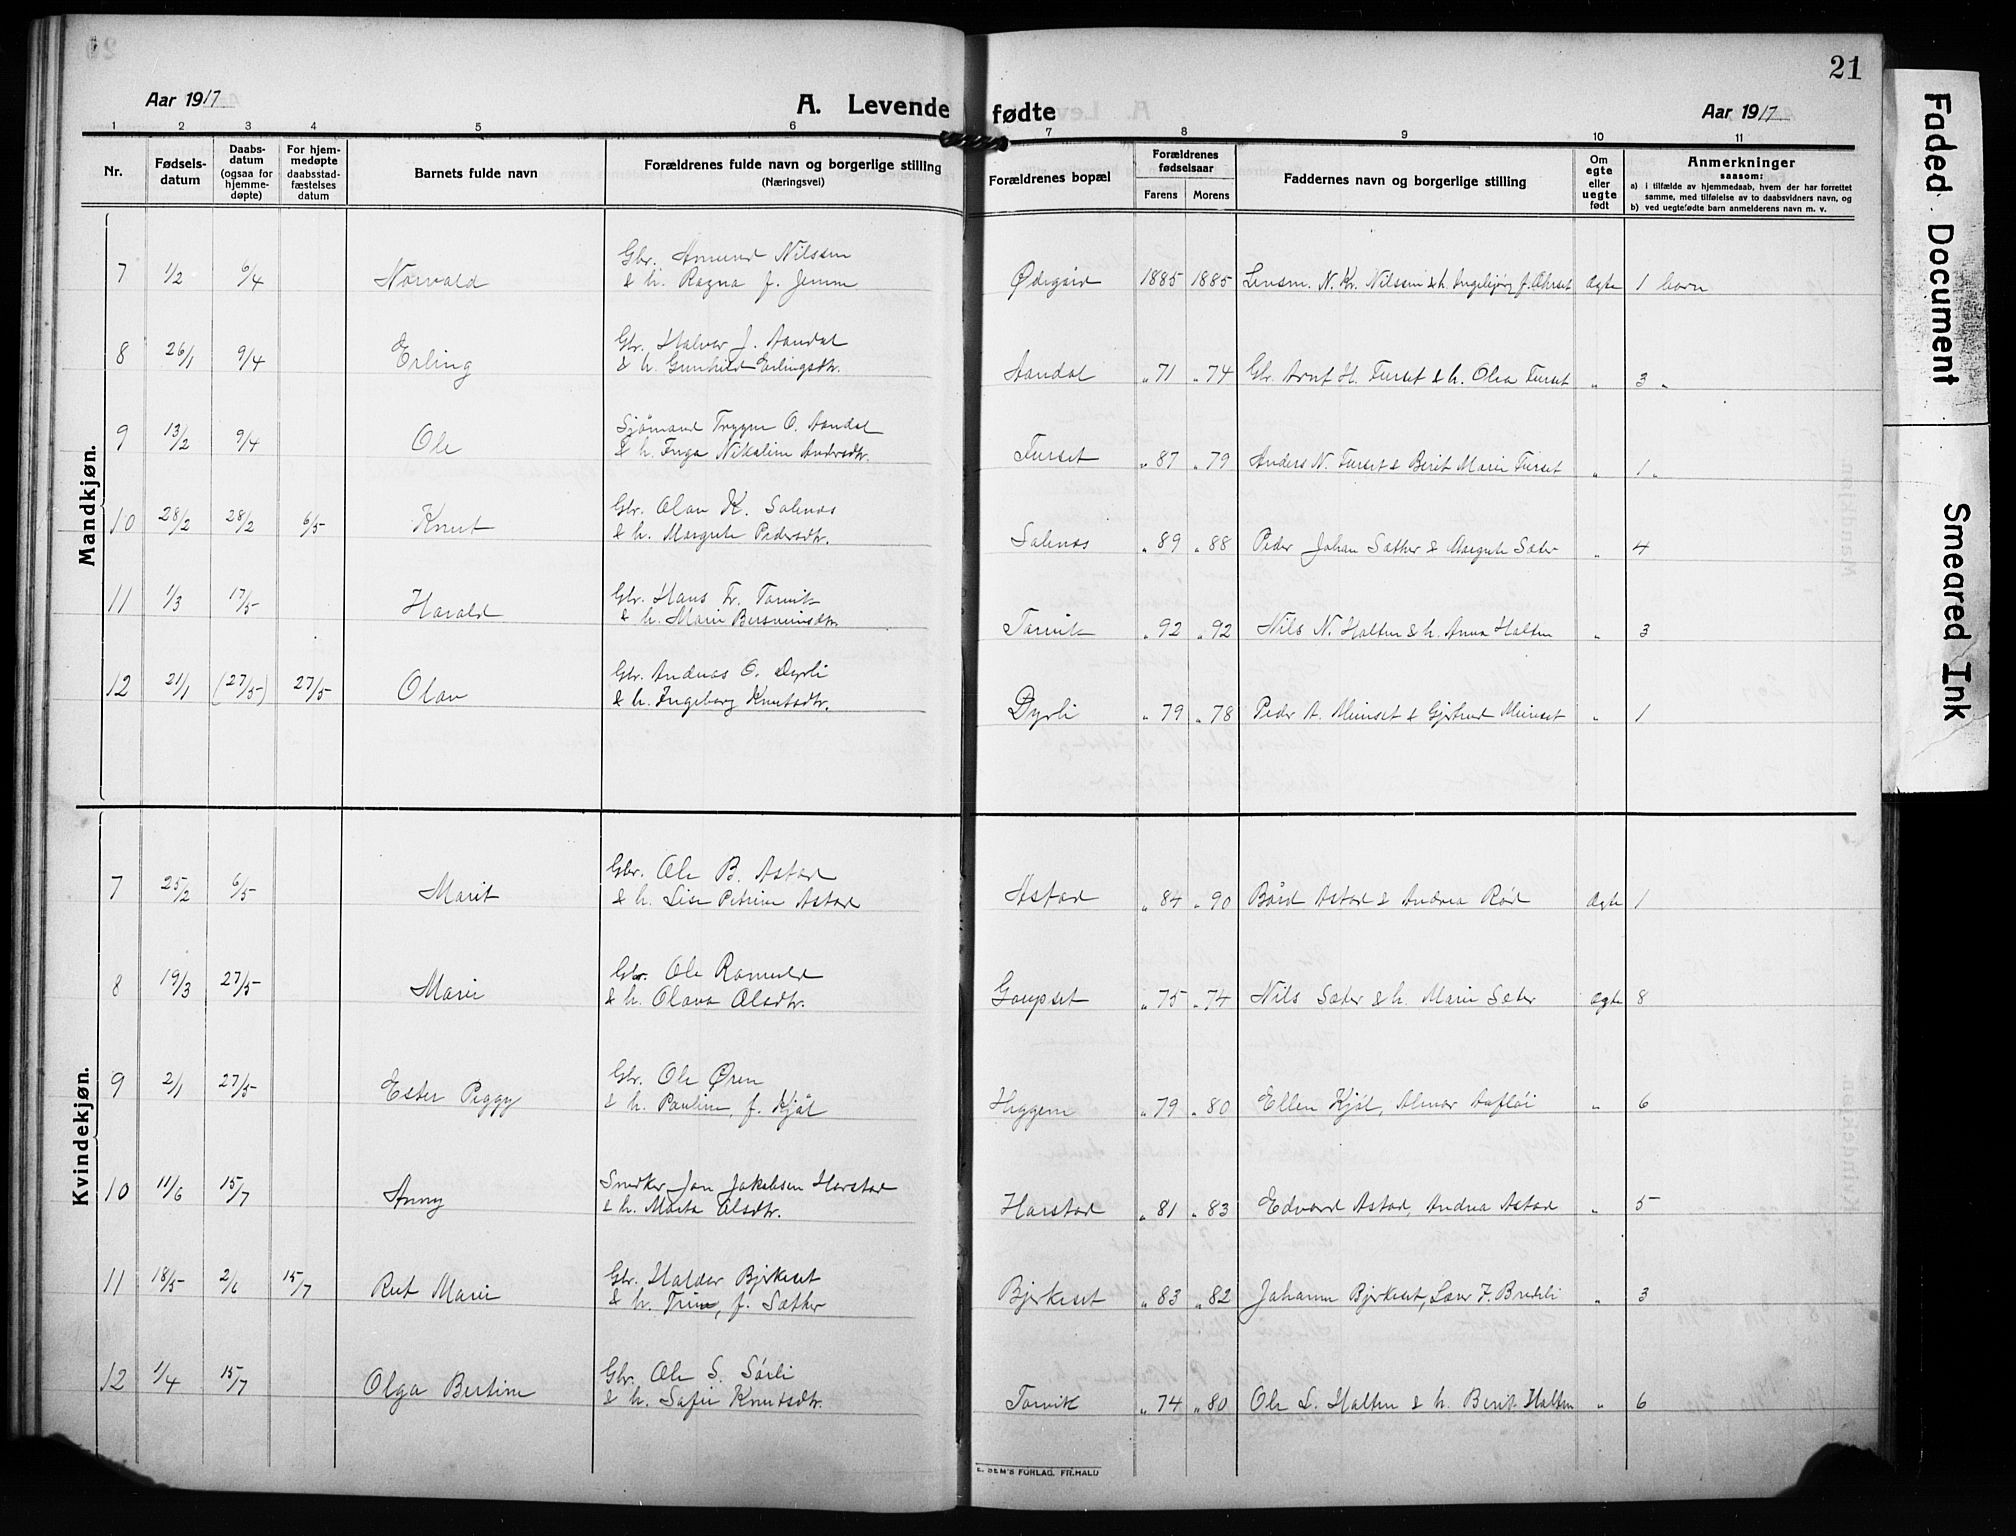 21
Aar 1917
A. Levende fødte
Aar 1917
1 2 3 4 5 6 7 8 9 10 11
Nr.
Fødsels-
datum
Daabs-
datum
(ogsaa for
hjemme-
døpte)
For hjem-
medøpte
daabsstad-
fæstelses
datum
Barnets fulde navn
Forældrenes fulde navn og borgerlige stilling
(Næringsvei)
Forældrenes bopæl
Forældrenes
fødselsaar
Farens Morens
Faddernes navn og borgerlige stilling
Om
egte
eller
uegte
født
Anmerkninger
saasom:
a) i tilfælde av hjemmedaab, hvem der har forrettet
samme, med tilføielse av to daabsvidners navn, og
b) ved uegtefødte barn anmelderens navn m. v.
Mandkjøn.
Gbr. Amund Nilssen
7 1/2 6/4 Norvald & h. Ragna f. Jemne Ødegård 1885 1885 Lensm. N. Kr. Nilssen & h. Ingebjørg f. Ohrset Ægte 1 barn
Gbr. Halvor J. Aandal
8 26/1 9/4 Erling & h. Gunhild Erlingsdtr. Aandal " 71 " 74 Gbr. Arnt H. Furset & h. Olea Furset " 3 "
Sjømand Trygve O. Aandal
9 13/2 9/4 Ole & h. Inga Nikoline Andersdtr. Furset " 87 " 79 Anders N. Furset & Berit Marie Furset " 1 "
Gbr. Olav K. Solenes
10 28/2 28/2 6/5 Knut & h. Margrete Pedersdtr. Solenes " 89 " 88 Peder Johan Sæther & Margrete Sæter " 4
Gbr. Hans Fr. Torvik
11 1/3 17/5 Harald & h. Marie Bersveinsdtr. Torvik " 92 " 92 Nils N. Halten & h. Anna Halten " 3
Gbr. Andreas O. Dyrli
12 21/1 (27/5) 27/5 Olav & h. Ingeborg Knutsdtr. Dyrli " 79 " 78 Peder A. Meinset & Gjertrud Meinset " 1
Kvindekjøn.
Gbr. Ole B. Astad
7 25/2 6/5 Marit & h. Lise Petrine Astad Astad " 84 " 90 Bård Astad & Andrea Rød Ægte 1
Gbr. Ole Ramueld
8 19/3 27/5 Marie & h. Olava Olsdtr. Gaupset " 75 " 74 Nils Sæter & h. Marie Sæter Ægte 8
Gbr. Ole Øren
9 2/1 27/5 Ester Peggy & h. Pauline, f. Kjøl Heggem " 79 " 80 Ellen Kjøl, Almar Aafløi " 6
Snedker Jon Jakobsen Harstad
10 11/6 15/7 Anny & h. Marta Olsdtr. Harstad " 81 " 83 Edvard Astad, Andrea Astad " 5
Gbr. Haldor Bjerkeset
11 18/5 2/6 15/7 Rut Marie & h. Trine, f. Sæther Bjerkeset " 83 " 82 Johanne Bjerkeset, Lars J. Bredeli " 3
Gbr. Ole S. Sørli
12 1/4 15/7 Olga Bertine & h. Sofie Knutsdtr. Torvik " 74 " 80 Ole L. Halten & h. Berit Halten " 6
E. SEM'S FORLAG, FR.HALD
Faded Document
Smeared Ink